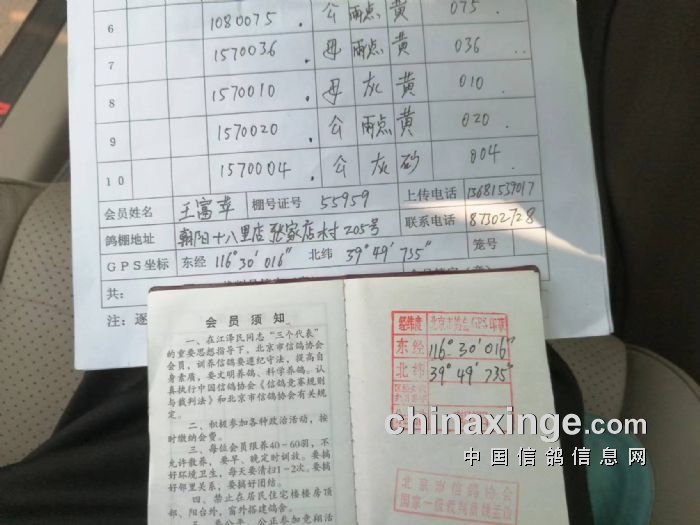 6 1080075 公 雨点 黄 075
7 1570036 母 雨点 黄 036
8 1570010 母 灰 黄 010
9 1570020 公 雨点 黄 020
10 1570004 公 灰 砂 004
会员姓名 王富幸 棚号证号 55959 上传电话 13681539017
鸽棚地址 朝阳十八里店张家店村205号 联系电话 87302728
GPS坐标 东经 116°30′016″ 北纬 39°49′735″ 笼号
共:
注:逐
会员须知
一、在江泽民同志“三个代表”
的重要思想指导下,北京市信鸽协会
会员,训养信鸽要遵纪守法,提高自
身素质,要文明养鸽、科学养鸽。认
真执行中国信鸽协会《信鸽竞赛规则
与裁判法》和北京市信鸽协会有关规
定。
二、积极参加各种政治活动,按
时缴纳会费。
三、每位会员限养40-60羽,不
允许散养,要早、晚定时训放。要搞
好环境卫生,每天要清扫1-2次。要搞
好邻里关系,要搞好团结。
四、禁止在居民住宅楼楼房顶
部、阳台外,窗外搭建鸽舍。
五、要公平、公正参加竞翔活
经纬度
东经 116°30′016″
北纬 39°49′735″
chinaxinge.com
中国信鸽信息网
北京市信鸽协会
国家一级裁判员